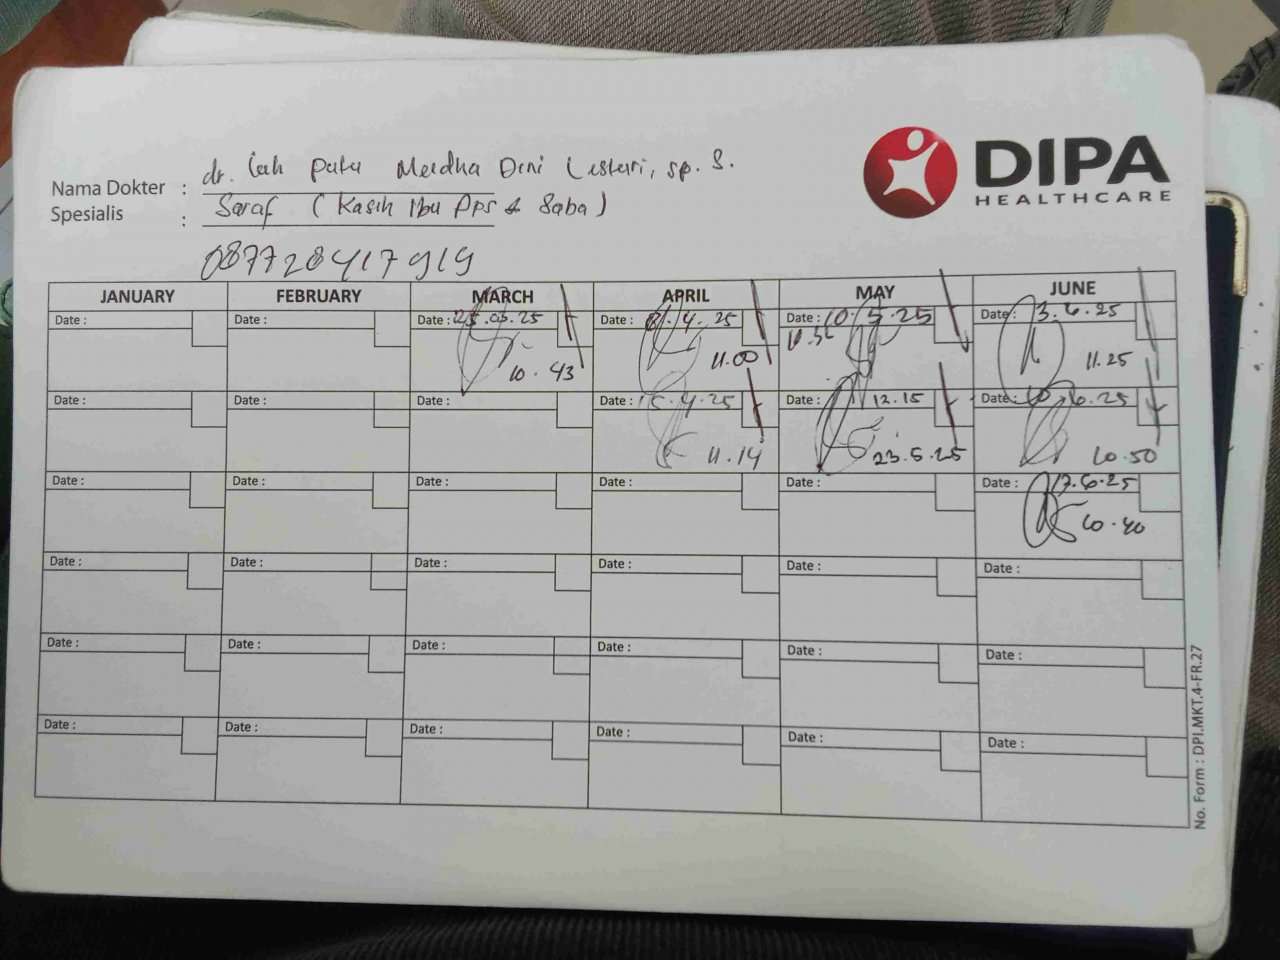 DIPA
HEALTHCARE
Nama Dokter : dr. Putu Meidha Dini Lestari, sp. S.
Spesialis : Saraf (Kasih Ibu Dps & Saba)
087728417919
JANUARY FEBRUARY MARCH APRIL MAY JUNE
Date : Date : Date : 25.03.25 Date : 8.4.25 Date : 10.5.25 Date : 3.6.25
10.43 11.00 11.25
Date : Date : Date : Date : 15.4.25 Date : 12.15 Date : 10.6.25
11.14 23.5.25 10.50
Date : Date : Date : Date : Date : Date : 17.6.25
10.40
Date : Date : Date : Date : Date : Date :
Date : Date : Date : Date : Date : Date :
Date : Date : Date : Date : Date : Date :
No. Form : DPI.MKT.4-FR.27